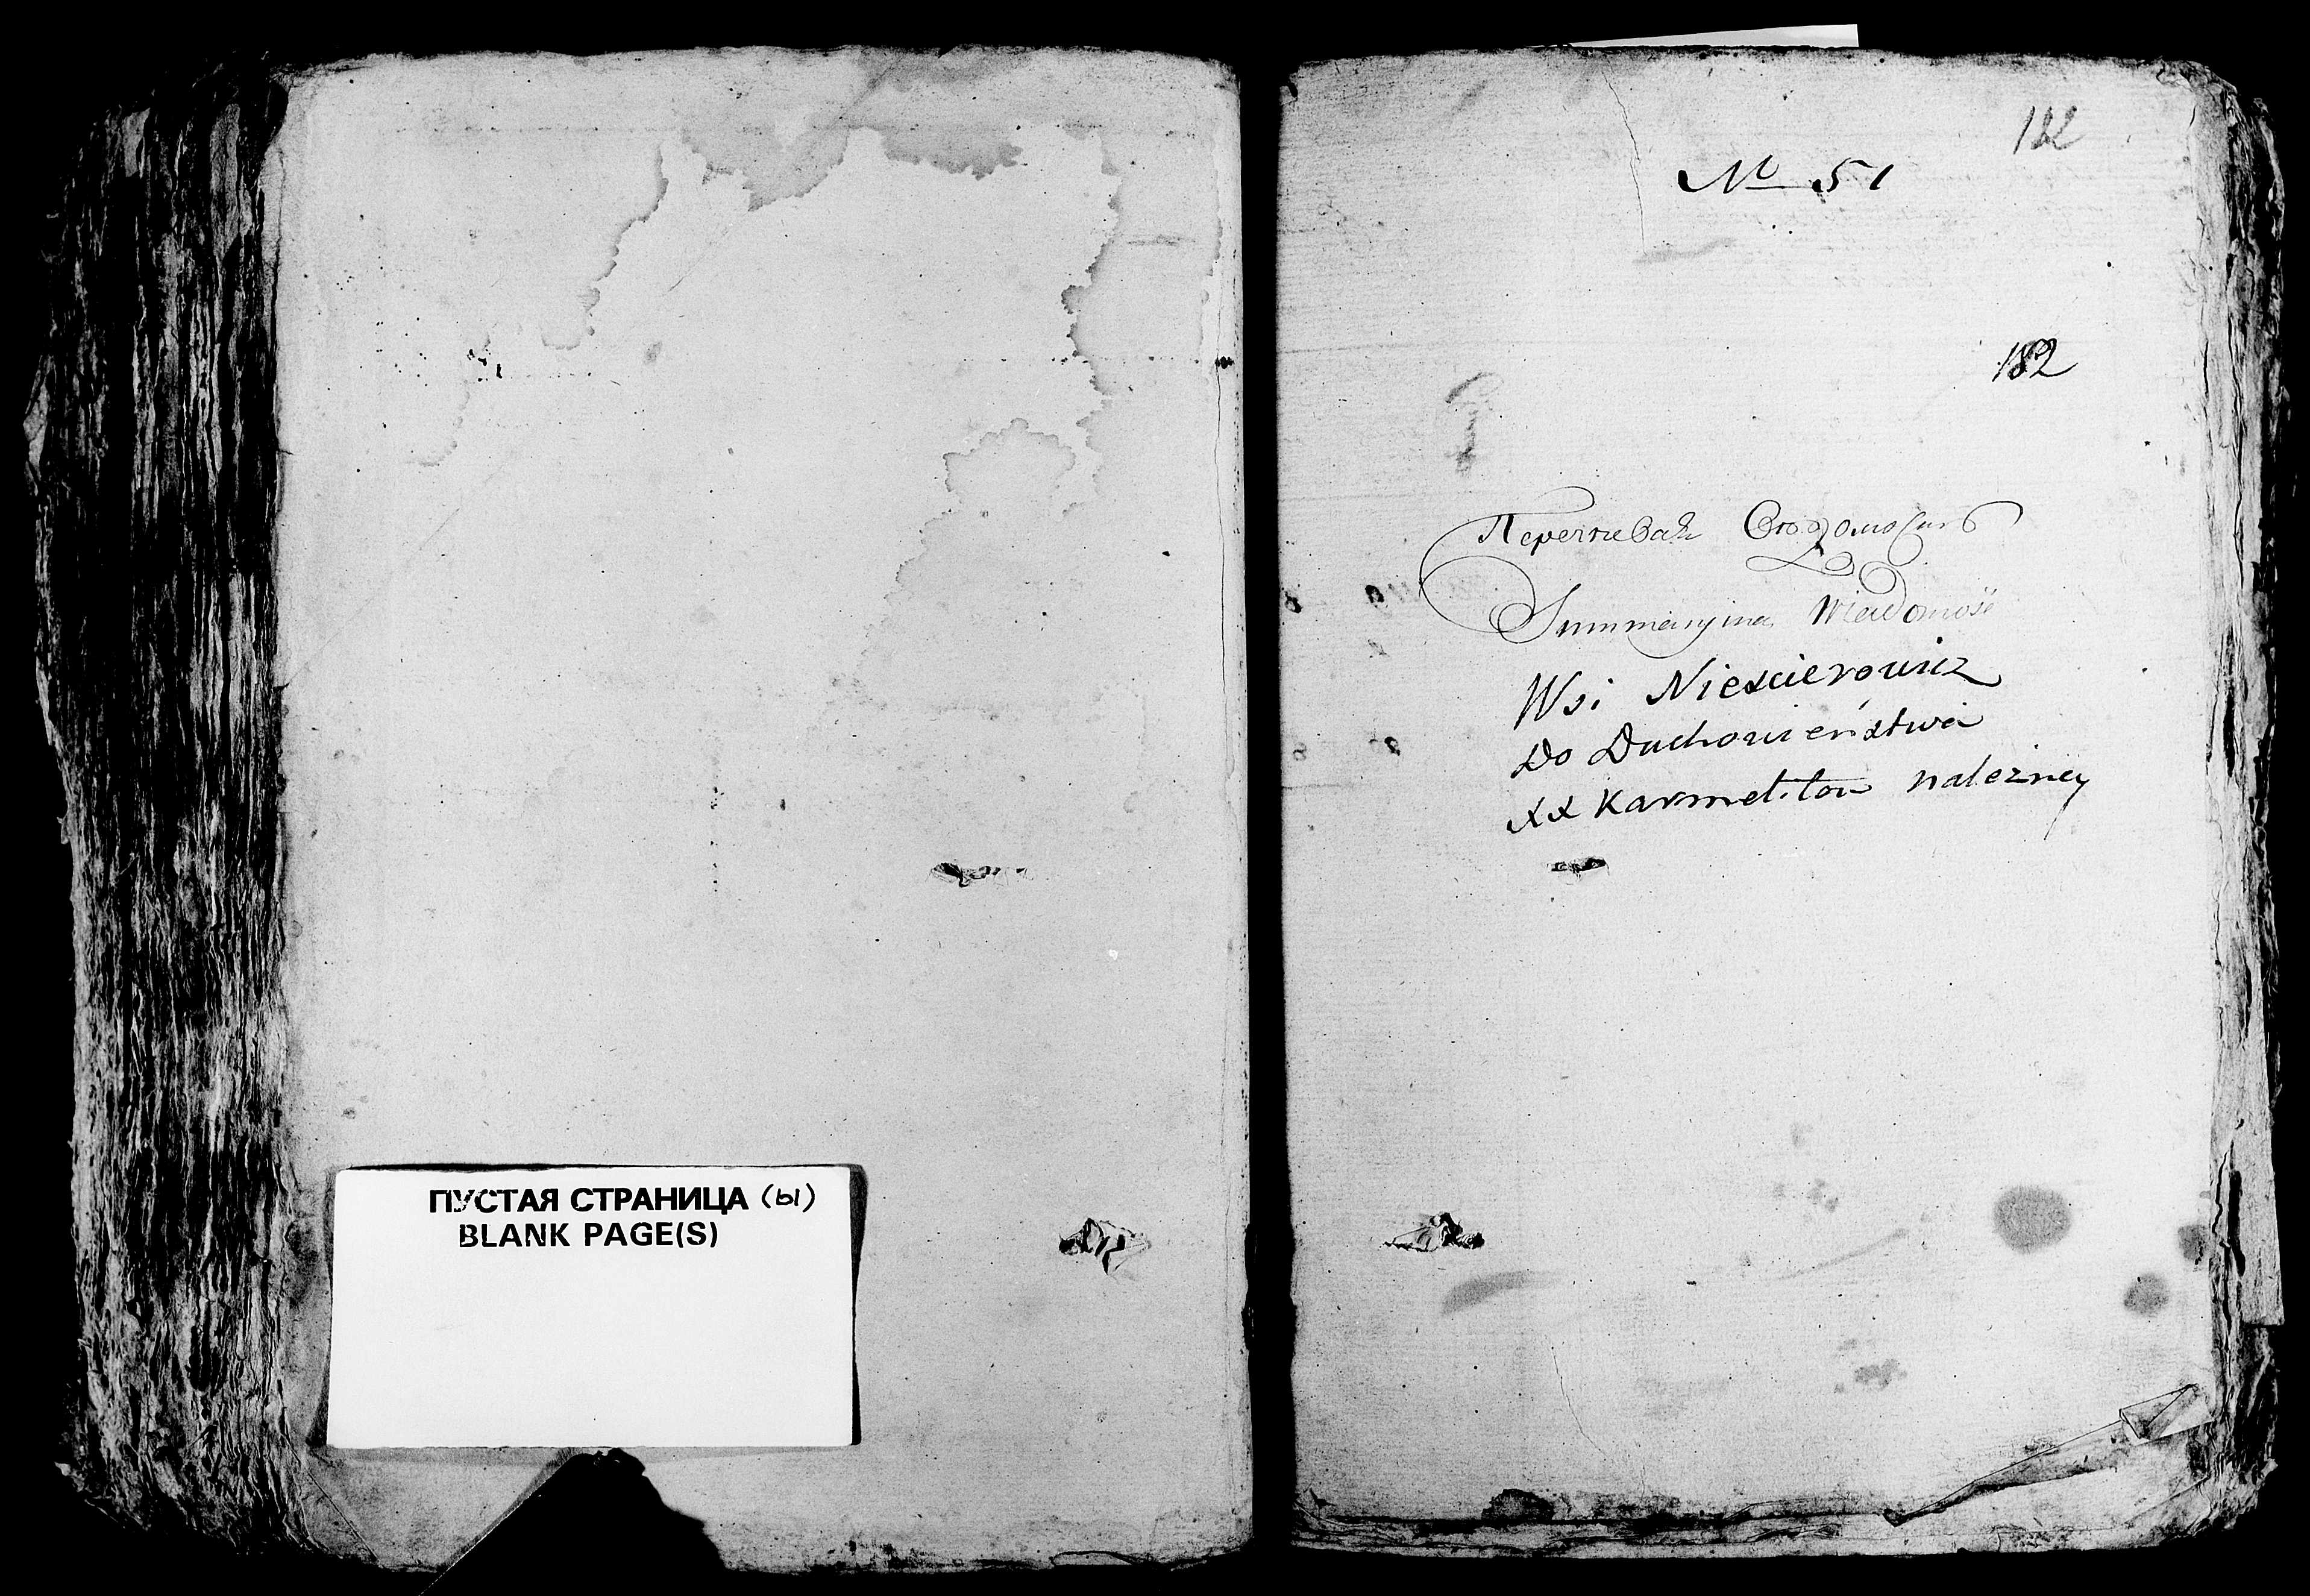 ПУСТАЯ СТРАНИЦА (Ы)
BLANK PAGE(S)
182
№ 51
182
Перечневая Вѣдомость
Summaryjna Wiadomość
Wsi Niescierowicz
Do Duchowieństwa
XX Karmelitow należney